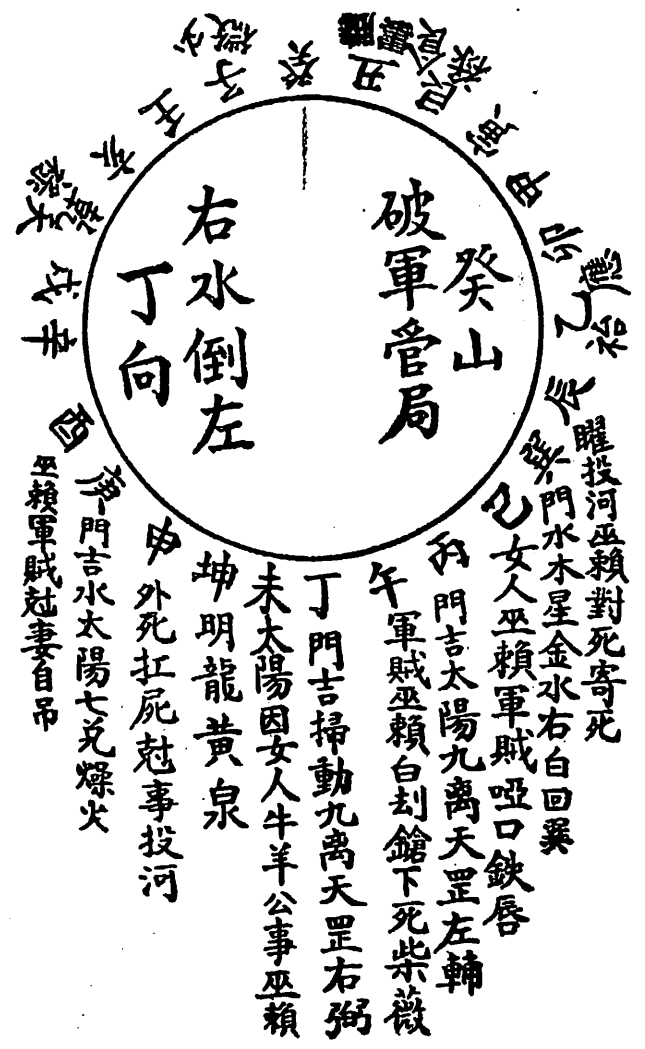 癸山
破軍管局
右水倒左
丁向
癸
丑
艮
寅
甲
卯
乙
應
辰
曜投河巫賴對死寄死
巽
門水木星金水右白回巽
巳
女人巫賴軍賊啞口鉄唇
丙
門吉太陽九离天罡左輔
午
軍賊巫賴白刦鎗下死柴薇
丁
門吉掃動九离天罡右弼
未
太陽因女人牛羊公事巫賴
坤
明龍黃泉
申
外死扛屍尅事投河
庚
門吉水太陽七兌燥火
酉
巫賴軍賊尅妻自吊
辛
戌
乾
亥
壬
子